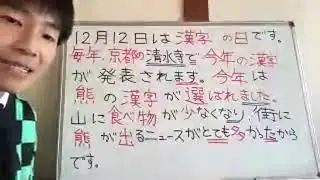 12月12日は漢字の日です。
毎年、京都の清水寺で今年の漢字
が発表されます。今年は
熊の漢字が選ばれました。
山に食べ物が少なくなり、街に
熊が出るニュースがとても多かったから
です。